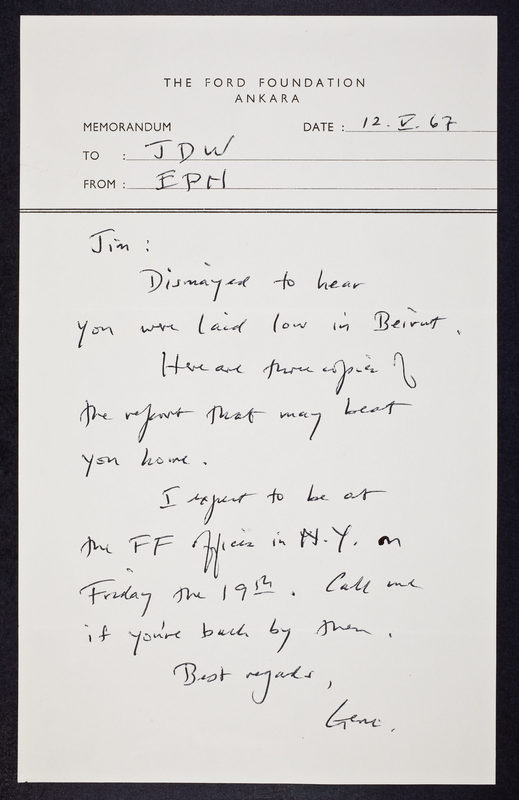 THE FORD FOUNDATION
ANKARA
MEMORANDUM
DATE : 12. V. 67
TO : JDW
FROM : EPH
Jim :
Dismayed to hear
you were laid low in Beirut.
Here are three copies of
the report that may beat
you home.
I expect to be at
the FF offices in N.Y. on
Friday the 19th. Call me
if you're back by then.
Best regards,
Gene.